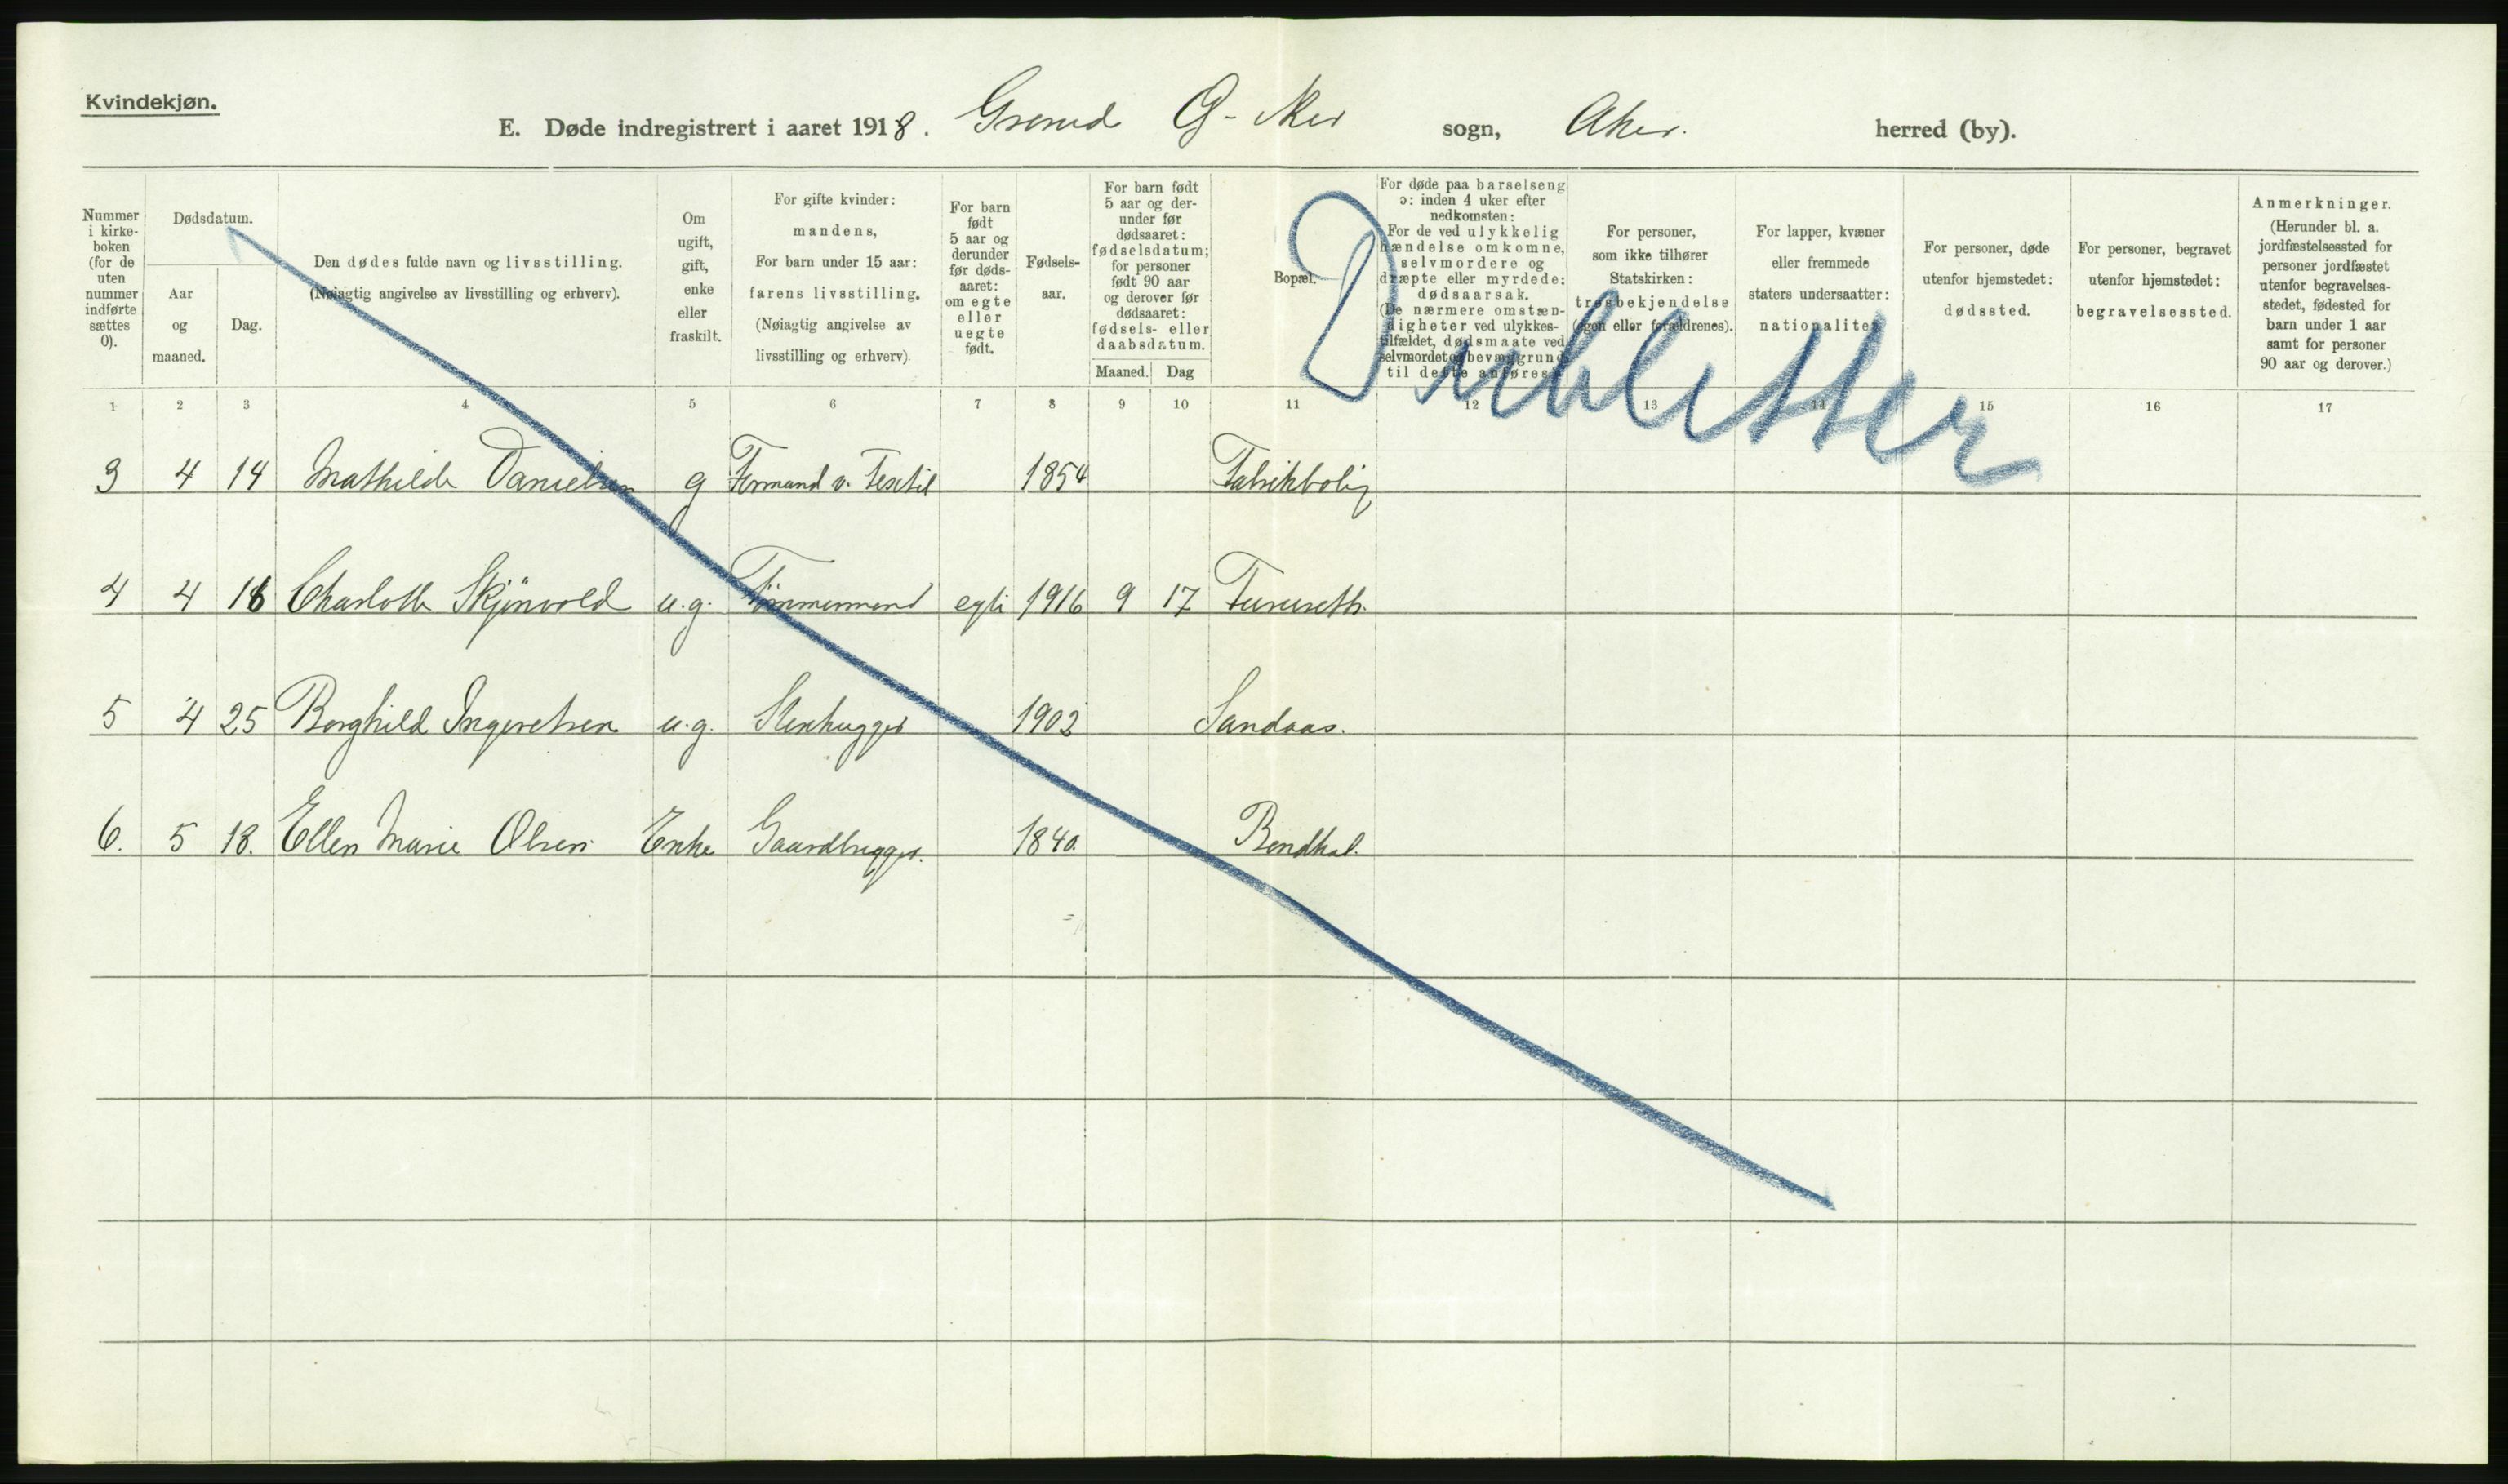 Kvindekjøn.
E. Døde indregistrert i aaret 1918. Grorud Ø-Aker sogn, Aker. herred (by).
Nummer i kirke-boken (for de uten nummer indførte sættes 0).
Dødsdatum.
Aar og maaned.
Dag.
Den dødes fulde navn og livsstilling.
(Nøiagtig angivelse av livsstilling og erhverv).
Om ugift, gift, enke eller fraskilt.
For gifte kvinder: mandens, For barn under 15 aar: farens livsstilling. (Nøiagtig angivelse av livsstilling og erhverv).
For barn født 5 aar og derunder før døds-aaret: om egte eller uegte født.
Fødsels-aar.
For barn født 5 aar og der-under før dødsaaret: fødselsdatum; for personer født 90 aar og derover før dødsaaret: fødsels- eller daabsdatum.
Maaned. Dag
Bopæl.
For døde paa barselseng ɔ: inden 4 uker efter nedkomsten: For de ved ulykkelig hændelse omkomne, selvmordere og dræpte eller myrdede: dødsaarsak. (De nærmere omstæn-digheter ved ulykkes-tilfældet, dødsmaate ved selvmordet og bevæggrund til dette anføres).
For personer, som ikke tilhører Statskirken: trosbekjendelse (egen eller forældrenes).
For lapper, kvæner eller fremmede staters undersaatter: nationalitet
For personer, døde utenfor hjemstedet: dødssted.
For personer, begravet utenfor hjemstedet: begravelsessted.
Anmerkninger. (Herunder bl. a. jordfæstelsessted for personer jordfæstet utenfor begravelses-stedet, fødested for barn under 1 aar samt for personer 90 aar og derover.)
Dubletter
1 2 3 4 5 6 7 8 9 10 11 12 13 14 15 16 17
3 4 14 Mathilde Danielsen g Formand v. Textil 1854 Fabrikbolig
4 4 18 Charlotte Skjönvold u.g. Tömmermand egte 1916 9 17 Furuseth.
5 4 25 Borghild Ingvretsen u.g. Stenhugger 1902 Sandaas.
6. 5 18. Ellen Marie Olsen Enke Gaardbruger. 1840.